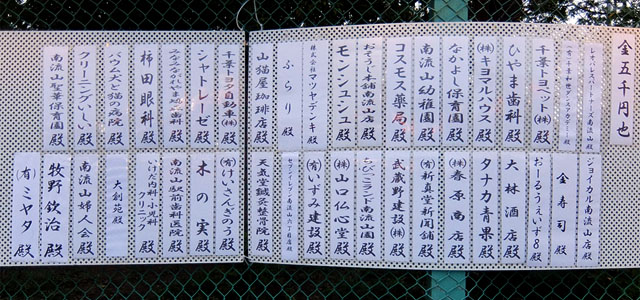 金五千円也
レオパレスパートナーズ南流山店 殿
千葉トヨペット㈱ 殿
ひやま歯科 殿
㈱キヨマルハウス 殿
なかよし保育園 殿
南流山幼稚園 殿
コスモス薬局 殿
おそうじ本舗南流山店 殿
モンシュシュ 殿
株式会社マツヤデンキ 殿
ふらり 殿
山猫屋珈琲店 殿
千葉トヨタ自動車㈱ 殿
シャトレーゼ 殿
みなみながれやま坂歯科 殿
柿田眼科 殿
バウム犬と猫の病院 殿
クリーニングいしい 殿
南流山聖華保育園 殿
ジョイカル南流山店 殿
金寿司 殿
おーるうぇいず8 殿
大林酒店 殿
タナカ青果 殿
㈱春原商店 殿
㈲新真堂新聞舗 殿
武蔵野建設㈱ 殿
ちびっこランド南流山園 殿
㈱山口仏心堂 殿
㈲いずみ建設 殿
セブンイレブン南流山六丁目店 殿
天気堂鍼灸整骨院 殿
㈲けいさんぎのう 殿
木の実 殿
南流山駅前歯科医院 殿
いけだ内科小児科クリニック 殿
大創苑 殿
南流山婦人会 殿
牧野欽治 殿
㈲ミヤタ 殿